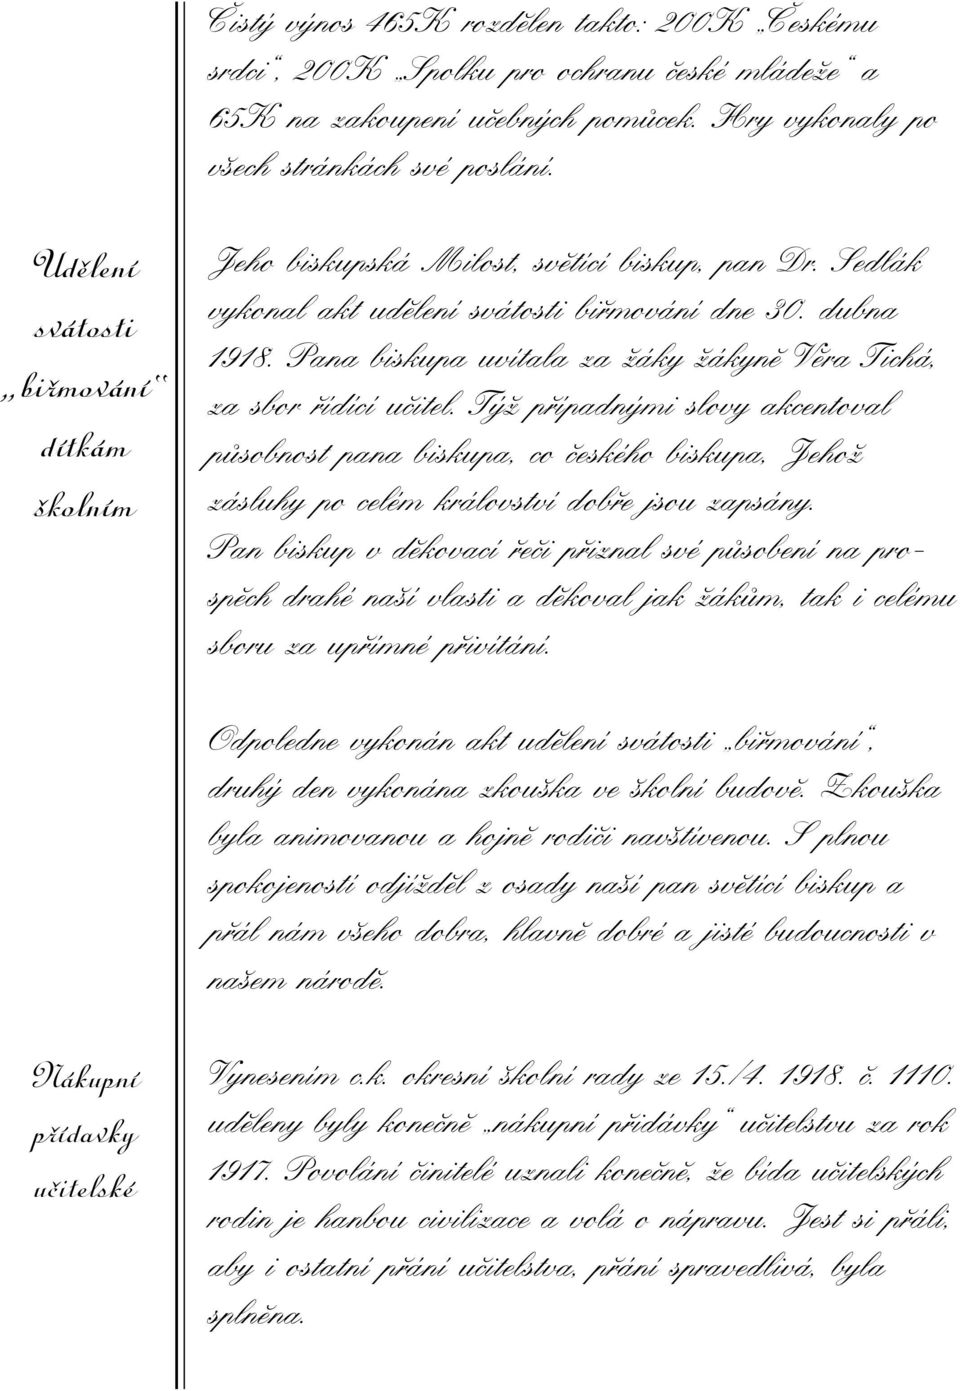 Čistý výnos 465K rozdělen takto: 200K „Českému
srdci“, 200K „Spolku pro ochranu české mládeže“ a
65K na zakoupení učebných pomůcek. Hry vykonaly po
všech stránkách své poslání.
Udělení
svátosti
„biřmování“
dítkám
školním
Jeho biskupská Milost, světící biskup, pan Dr. Sedlák
vykonal akt udělení svátosti biřmování dne 30. dubna
1918. Pana biskupa uvítala za žáky žákyně Věra Tichá,
za sbor řídící učitel. Týž případnými slovy akcentoval
působnost pana biskupa, co českého biskupa, Jehož
zásluhy po celém království dobře jsou zapsány.
Pan biskup v děkovací řeči přiznal své působení na pro-
spěch drahé naší vlasti a děkoval jak žákům, tak i celému
sboru za upřímné přivítání.
Odpoledne vykonán akt udělení svátosti „biřmování“,
druhý den vykonána zkouška ve školní budově. Zkouška
byla animovanou a hojně rodiči navštívenou. S plnou
spokojeností odjížděl z osady naší pan světící biskup a
přál nám všeho dobra, hlavně dobré a jisté budoucnosti v
našem národě.
Nákupní
přídavky
učitelské
Vynesením c.k. okresní školní rady ze 15./4. 1918. č. 1110.
uděleny byly konečně „nákupní přidávky“ učitelstvu za rok
1917. Povolání činitelé uznali konečně, že bída učitelských
rodin je hanbou civilizace a volá o nápravu. Jest si přáli,
aby i ostatní přání učitelstva, přání spravedlivá, byla
splněna.